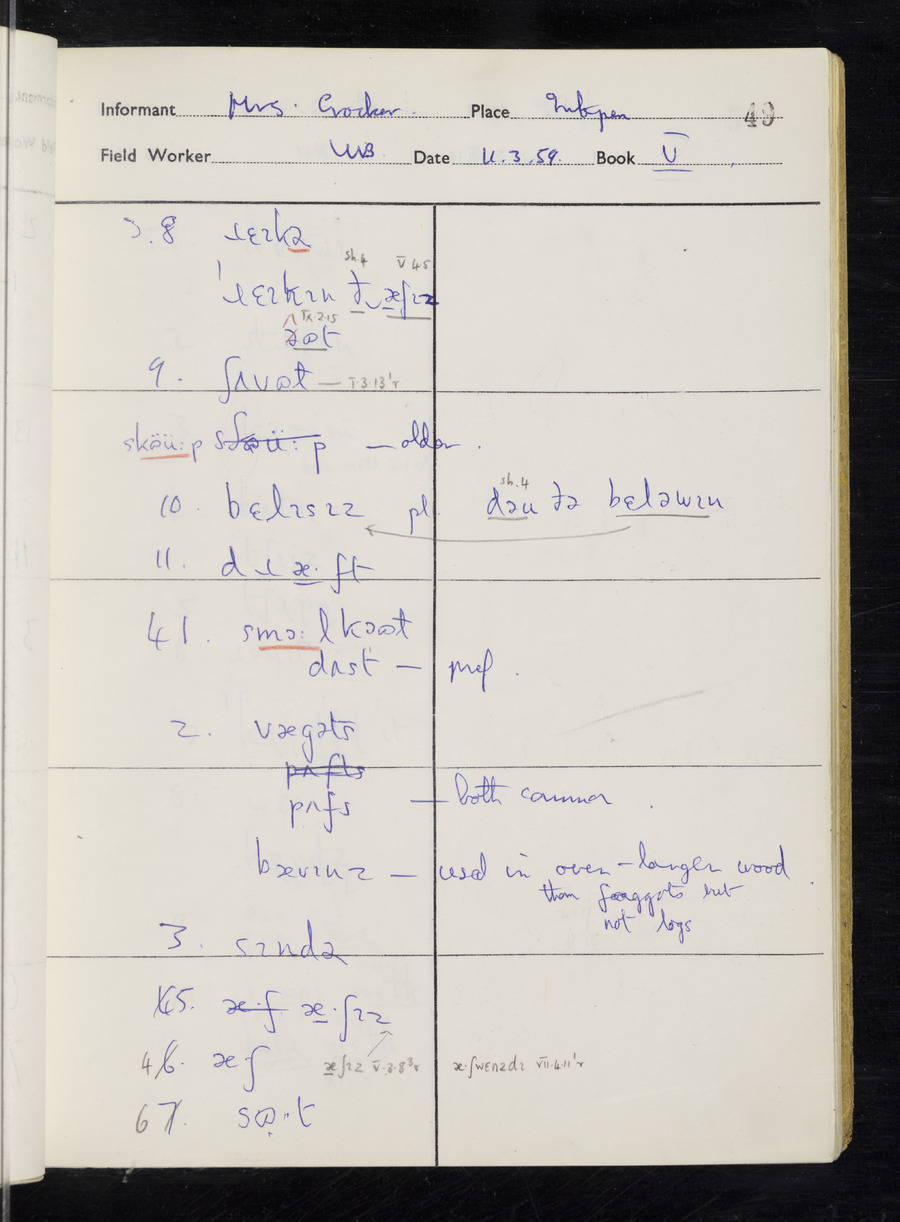 Informant Mrs. Crocker Place Inkpen 49
Field Worker WB Date 11.3.59. Book V
3.8 ɹɛɪkə
sh.4 V 45
ˈɹɛɪkɪn ð æʃɪz
IX.2.15
9. ʃʌvɵɫ — I.3.13'r
sköü:p — older.
10. bɛlɪsɪz pl.
sh.4
dəu ðə bɛləwɪn
11. dɹæ·ft
41. smɔ:l kɔɵɫ
dʌst — pref.
2. vægəts
pʌfts
pʌfs — both common.
bævɪnz — used in oven – larger wood
than faggots but
not logs
3. sɪndə
45. æ·ʃ æ·ʃɪz
46. æʃ æʃɪz V.3.8³r æ·ʃwɛnzdɪ VII.4.11'r
67. sɵ·t